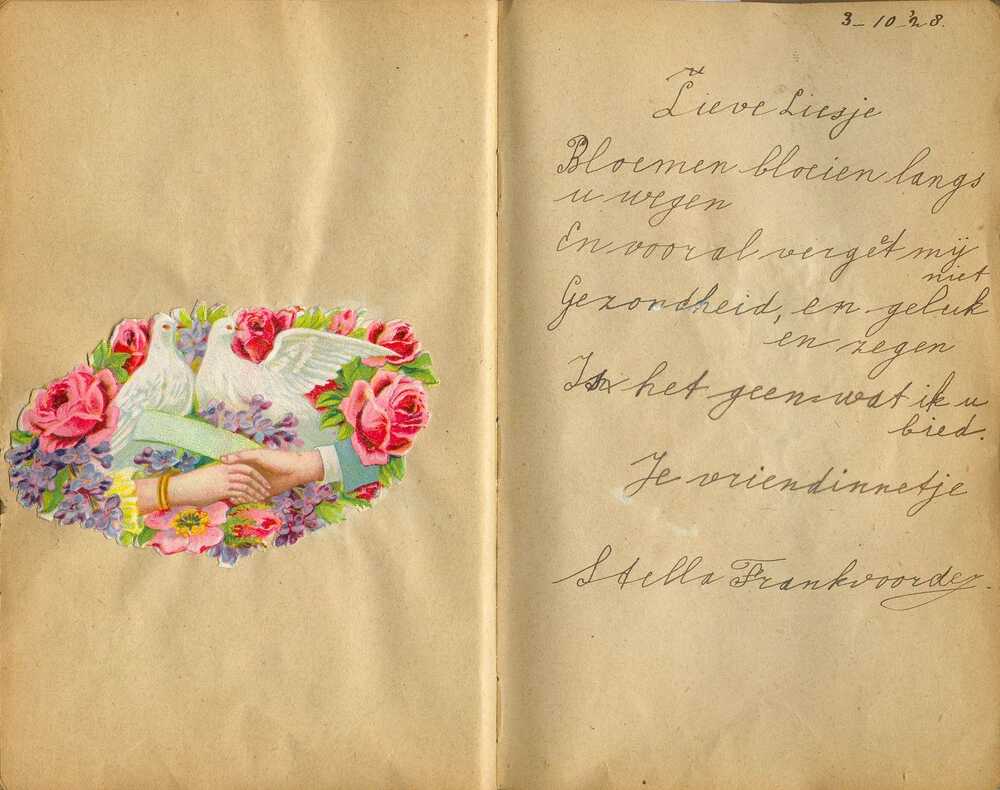 3-10-'28.
Lieve Liesje
Bloemen bloeien langs
u wegen
En vooral verget mij
niet
Gezondheid, en geluk
en zegen
Is het geen wat ik u
bied.
Je vriendinnetje
Stella Frankvoorder.